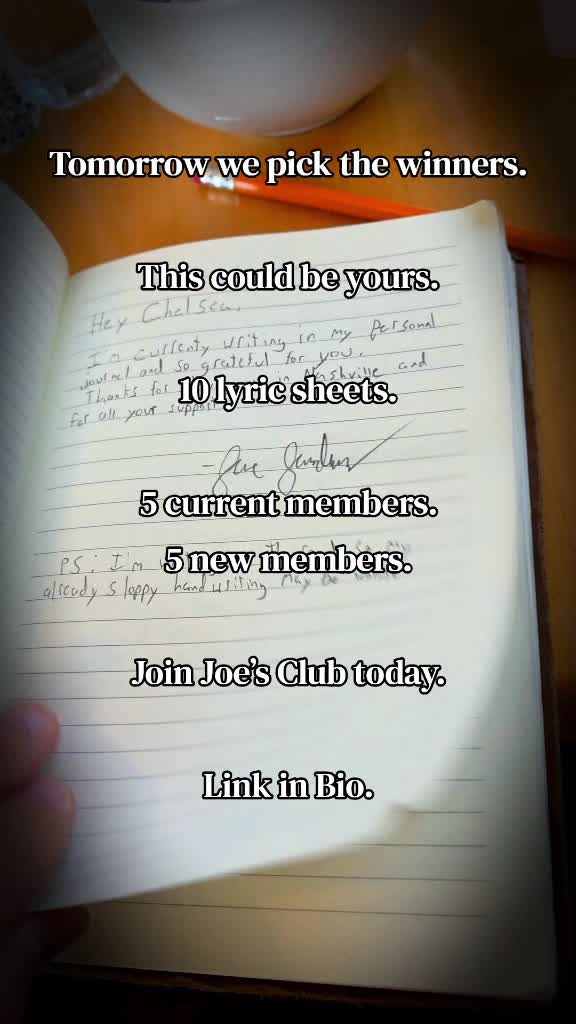 Tomorrow we pick the winners.
This could be yours.
Hey Chelsea,
I'm currenty writing in my personal
journel and so grateful for you.
Thanks for in Nashville and
10 lyric sheets.
for all your support
5 current members.
5 new members.
PS: I'm
already sloppy handwriting may be
Join Joe's Club today.
Link in Bio.